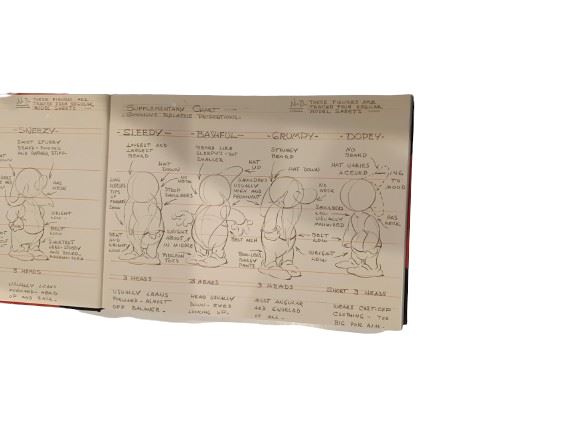 N.B. THESE FIGURES ARE
TRACED FROM REGULAR
MODEL SHEETS
-SNEEZY-
SHORT STUBBY
BEARD
HAS NECK
WEIGHT
LOW
BELT
LOW
SHORTEST
3 HEADS
USUALLY LEANS
FORWARD - HEAD
UP AND BACK.
SUPPLEMENTARY CHART
SHOWING RELATIVE PROPORTIONS.
N.B. THESE FIGURES ARE
TRACED FROM REGULAR
MODEL SHEETS
-SLEEPY-
LONGEST AND
LARGEST
BEARD
HAT DOWN
NO NECK
DROOP
SHOULDERS
LONG
SLEEVES
TIPS
OF
BELT AND
WEIGHT
LOW
3 HEADS
USUALLY LEANS
FORWARD - ALMOST
OFF BALANCE.
-BASHFUL-
BEARD LIKE
SLEEPY'S - BUT
SMALLER
HAT
UP
WEIGHT
ABOUT
IN MIDDLE
PIGEON
TOES
3 HEADS
HEAD USUALLY
DOWN - EYES
LOOKING UP.
-GRUMPY-
STRINGY
BEARD
HAT DOWN
SHOULDERS
USUALLY
HIGH AND
PROMINENT
NO
NECK
BELT HIGH
WEIGHT
LOW
BAGGY
PANTS
3 HEADS
MOST ANGULAR
AND GNARLED
OF ALL.
-DOPEY-
NO
BEARD
HAT VARIES
ACCORD
ING
TO
MOOD
SHOULDERS
LOW
USUALLY
HAS
NECK
BELT
LOW
SHORT 3 HEADS
WEARS CASTOFF
CLOTHING - TOO
BIG FOR HIM.